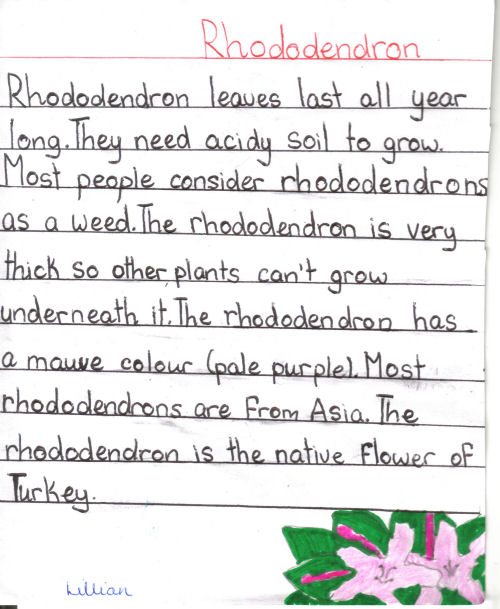 Rhododendron
Rhododendron leaves last all year
long. They need acidy soil to grow.
Most people consider rhododendrons
as a weed. The rhododendron is very
thick so other plants can't grow
underneath it. The rhododendron has
a mauve colour (pale purple). Most
rhododendrons are from Asia. The
rhododendron is the native flower of
Turkey.
Lillian